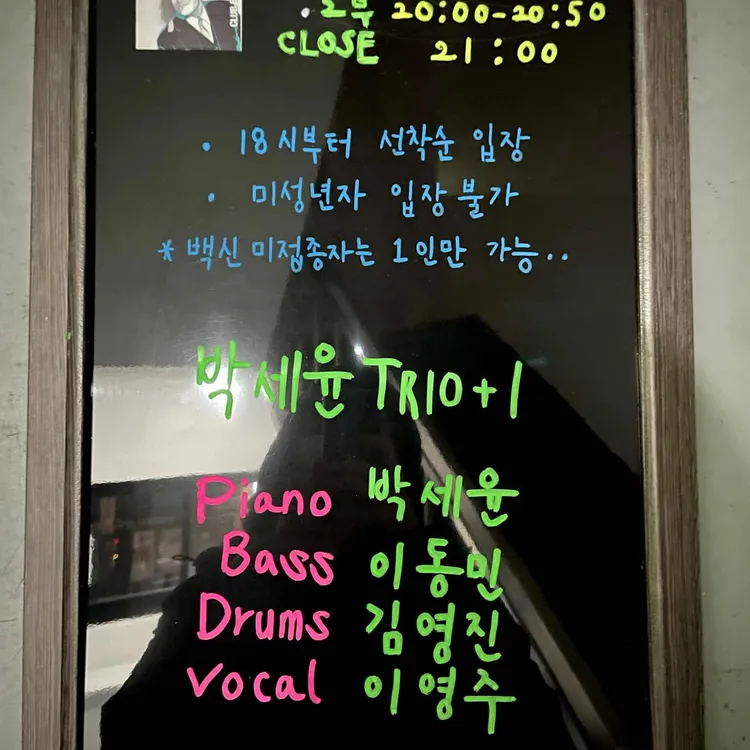 CLUB
. 2부 20:00-20:50
CLOSE 21:00
· 18시부터 선착순 입장
· 미성년자 입장 불가
* 백신 미접종자는 1인만 가능..
박세윤 TRIO+1
Piano 박세윤
Bass 이동민
Drums 김영진
Vocal 이영주